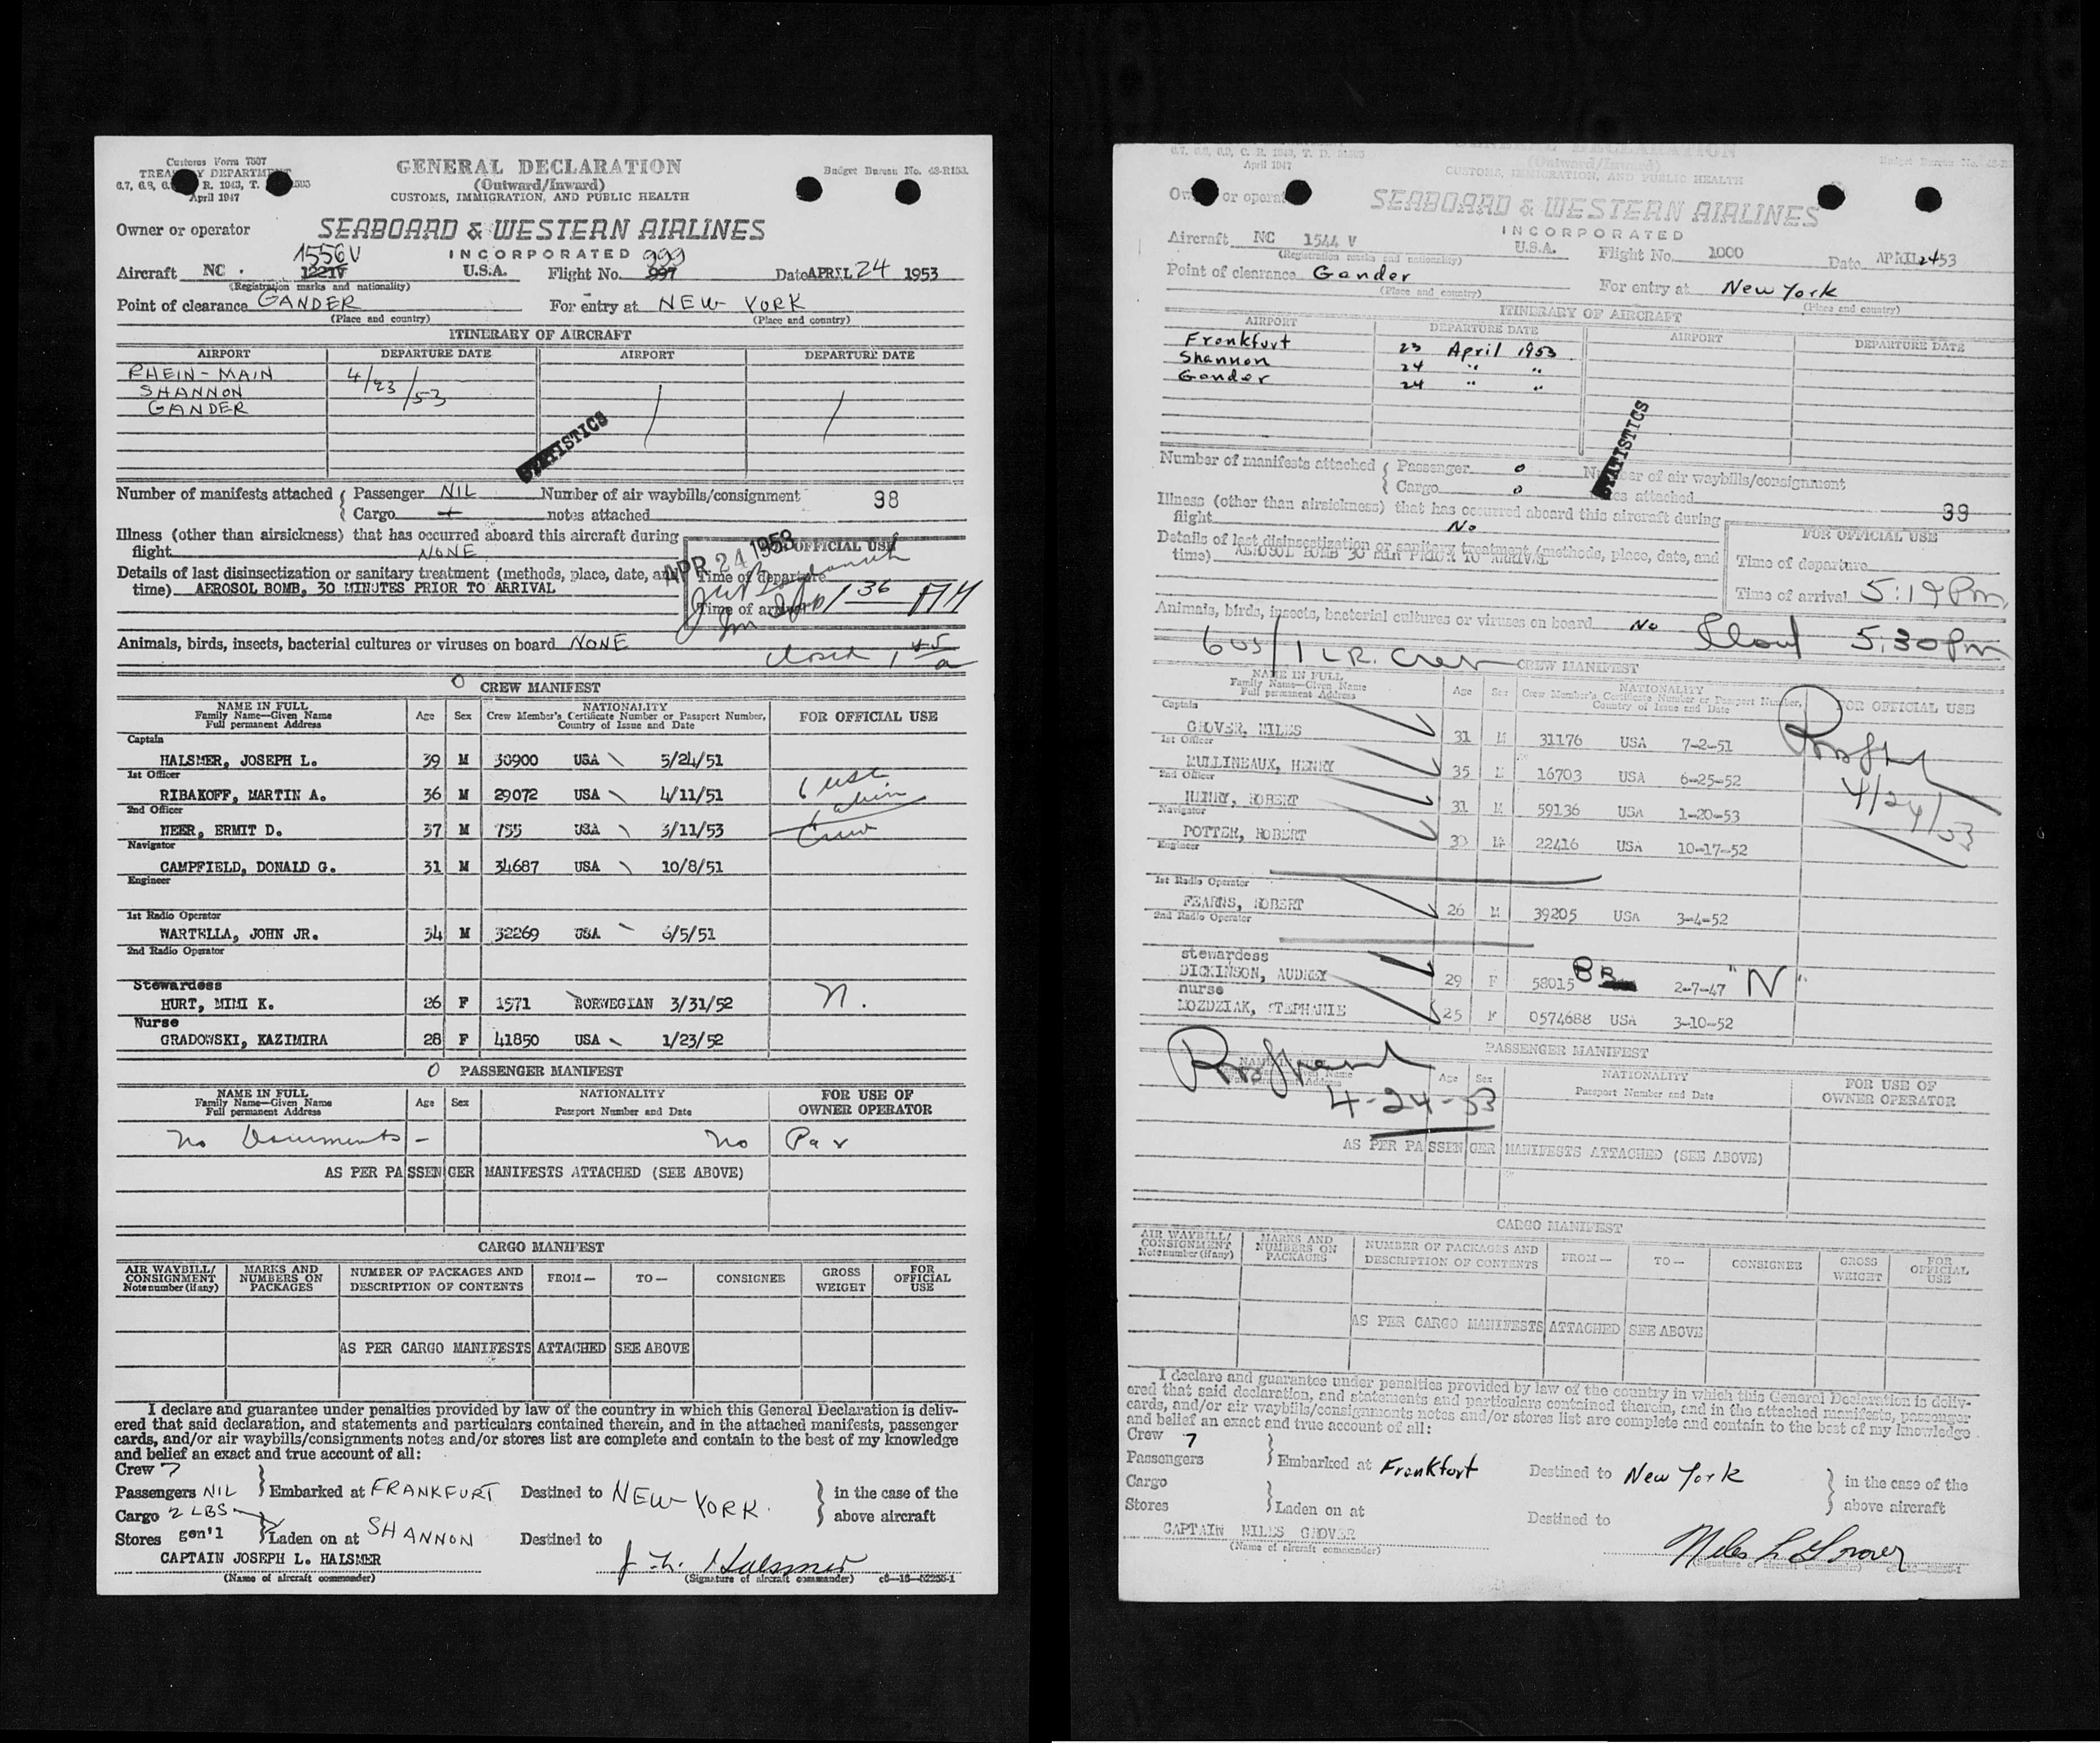 Customs Form 7507
TREASURY DEPARTMENT
6.7, 6.8, 6. R. 1943, T.
April 1947
GENERAL DECLARATION
(Outward/Inward)
CUSTOMS, IMMIGRATION, AND PUBLIC HEALTH
Budget Bureau No. 48-R153.
Owner or operator SEABOARD & WESTERN AIRLINES
INCORPORATED
1556V 999
Aircraft NC. 1221V U.S.A. Flight No. 997 Date APRIL 24 1953
(Registration marks and nationality)
Point of clearance GANDER For entry at NEW YORK
(Place and country) (Place and country)
ITINERARY OF AIRCRAFT
AIRPORT DEPARTURE DATE AIRPORT DEPARTURE DATE
RHEIN-MAIN 4/23/53
SHANNON
GANDER
STATISTICS
Number of manifests attached { Passenger NIL Number of air waybills/consignment 38
Cargo notes attached
Illness (other than airsickness) that has occurred aboard this aircraft during
flight NONE
FOR OFFICIAL USE
APR 24 1953
Details of last disinsectization or sanitary treatment (methods, place, date, and
time) AEROSOL BOMB, 30 MINUTES PRIOR TO ARRIVAL
Time of departure
Time of arrival 1 36 AM
Animals, birds, insects, bacterial cultures or viruses on board NONE
closed 1 45 a
0 CREW MANIFEST
NAME IN FULL
Family Name—Given Name
Full permanent Address
Age Sex
NATIONALITY
Crew Member's Certificate Number or Passport Number,
Country of Issue and Date
FOR OFFICIAL USE
Captain
HALSMER, JOSEPH L. 39 M 30900 USA 5/24/51
1st Officer
RIBAKOFF, MARTIN A. 36 M 29072 USA 4/11/51
2nd Officer
NEER, ERMIT D. 37 M 755 USA 3/11/53
Navigator
CAMPFIELD, DONALD G. 31 M 34687 USA 10/8/51
Engineer
6 usc
1 alien
Crew
1st Radio Operator
WARTELLA, JOHN JR. 34 M 32269 USA 6/5/51
2nd Radio Operator
Stewardess
HURT, MIMI K. 26 F 1571 NORWEGIAN 3/31/52 N.
Nurse
GRADOWSKI, KAZIMIRA 28 F 41850 USA 1/23/52
0 PASSENGER MANIFEST
NAME IN FULL
Family Name—Given Name
Full permanent Address
Age Sex
NATIONALITY
Passport Number and Date
FOR USE OF
OWNER OPERATOR
No Documents - no Pax
AS PER PASSENGER MANIFESTS ATTACHED (SEE ABOVE)
CARGO MANIFEST
AIR WAYBILL/
CONSIGNMENT
Note number (if any)
MARKS AND
NUMBERS ON
PACKAGES
NUMBER OF PACKAGES AND
DESCRIPTION OF CONTENTS
FROM— TO— CONSIGNEE
GROSS
WEIGHT
FOR
OFFICIAL
USE
AS PER CARGO MANIFESTS ATTACHED SEE ABOVE
I declare and guarantee under penalties provided by law of the country in which this General Declaration is deliv-
ered that said declaration, and statements and particulars contained therein, and in the attached manifests, passenger
cards, and/or air waybills/consignments notes and/or stores list are complete and contain to the best of my knowledge
and belief an exact and true account of all:
Crew 7
Passengers NIL } Embarked at FRANKFURT Destined to NEW YORK. } in the case of the
Cargo 2 LBS above aircraft
Stores gen'l } Laden on at SHANNON Destined to
CAPTAIN JOSEPH L. HALSMER J. L. Halsmer
(Name of aircraft commander) (Signature of aircraft commander) c6—16—52255-1
6.7, 6.8, 6.9, C. R. 1943, T. D.
April 1947
GENERAL DECLARATION
(Outward/Inward)
CUSTOMS, IMMIGRATION, AND PUBLIC HEALTH
Budget Bureau No. 48-R
Owner or operator SEABOARD & WESTERN AIRLINES
INCORPORATED
Aircraft NC 1544 V U.S.A. Flight No. 1000 Date APRIL 24 53
(Registration marks and nationality)
Point of clearance Gander For entry at New York
(Place and country) (Place and country)
ITINERARY OF AIRCRAFT
AIRPORT DEPARTURE DATE AIRPORT DEPARTURE DATE
Frankfurt 23 April 1953
Shannon 24 " "
Gander 24 " "
STATISTICS
Number of manifests attached { Passenger 0 Number of air waybills/consignment
Cargo 0 notes attached 39
Illness (other than airsickness) that has occurred aboard this aircraft during
flight No
FOR OFFICIAL USE
Details of last disinsectization or sanitary treatment (methods, place, date, and
time) AEROSOL BOMB 30 MIN PRIOR TO ARRIVAL
Time of departure
Time of arrival 5:19 Pm
Animals, birds, insects, bacterial cultures or viruses on board No
5:30 Pm
6 US/1 L.R. Crew
CREW MANIFEST
NAME IN FULL
Family Name—Given Name
Full permanent Address
Age Sex
NATIONALITY
Crew Member's Certificate Number or Passport Number,
Country of Issue and Date
FOR OFFICIAL USE
Captain
GROVER, NILES 31 M 31176 USA 7-2-51
1st Officer
MULLINEAUX, HENRY 35 M 16703 USA 6-25-52
2nd Officer
HENRY, ROBERT 31 M 59136 USA 1-20-53
Navigator
POTTER, ROBERT 33 M 22416 USA 10-17-52
Engineer
4/24/53
1st Radio Operator
FEARNS, ROBERT 26 M 39205 USA 3-4-52
2nd Radio Operator
stewardess
DICKINSON, AUDREY 29 F 58015 BR 2-7-47 "N"
nurse
MOZDZIAK, STEPHANIE 25 F 0574688 USA 3-10-52
PASSENGER MANIFEST
NAME IN FULL
Family Name—Given Name
Full permanent Address
Age Sex
NATIONALITY
Passport Number and Date
FOR USE OF
OWNER OPERATOR
4-24-53
AS PER PASSENGER MANIFESTS ATTACHED (SEE ABOVE)
CARGO MANIFEST
AIR WAYBILL/
CONSIGNMENT
Note number (if any)
MARKS AND
NUMBERS ON
PACKAGES
NUMBER OF PACKAGES AND
DESCRIPTION OF CONTENTS
FROM— TO— CONSIGNEE
GROSS
WEIGHT
FOR
OFFICIAL
USE
AS PER CARGO MANIFESTS ATTACHED SEE ABOVE
I declare and guarantee under penalties provided by law of the country in which this General Declaration is deliv-
ered that said declaration, and statements and particulars contained therein, and in the attached manifests, passenger
cards, and/or air waybills/consignments notes and/or stores list are complete and contain to the best of my knowledge
and belief an exact and true account of all:
Crew 7
Passengers } Embarked at Frankfurt Destined to New York } in the case of the
Cargo above aircraft
Stores } Laden on at Destined to
CAPTAIN NILES GROVER Niles L Grover
(Name of aircraft commander) (Signature of aircraft commander)